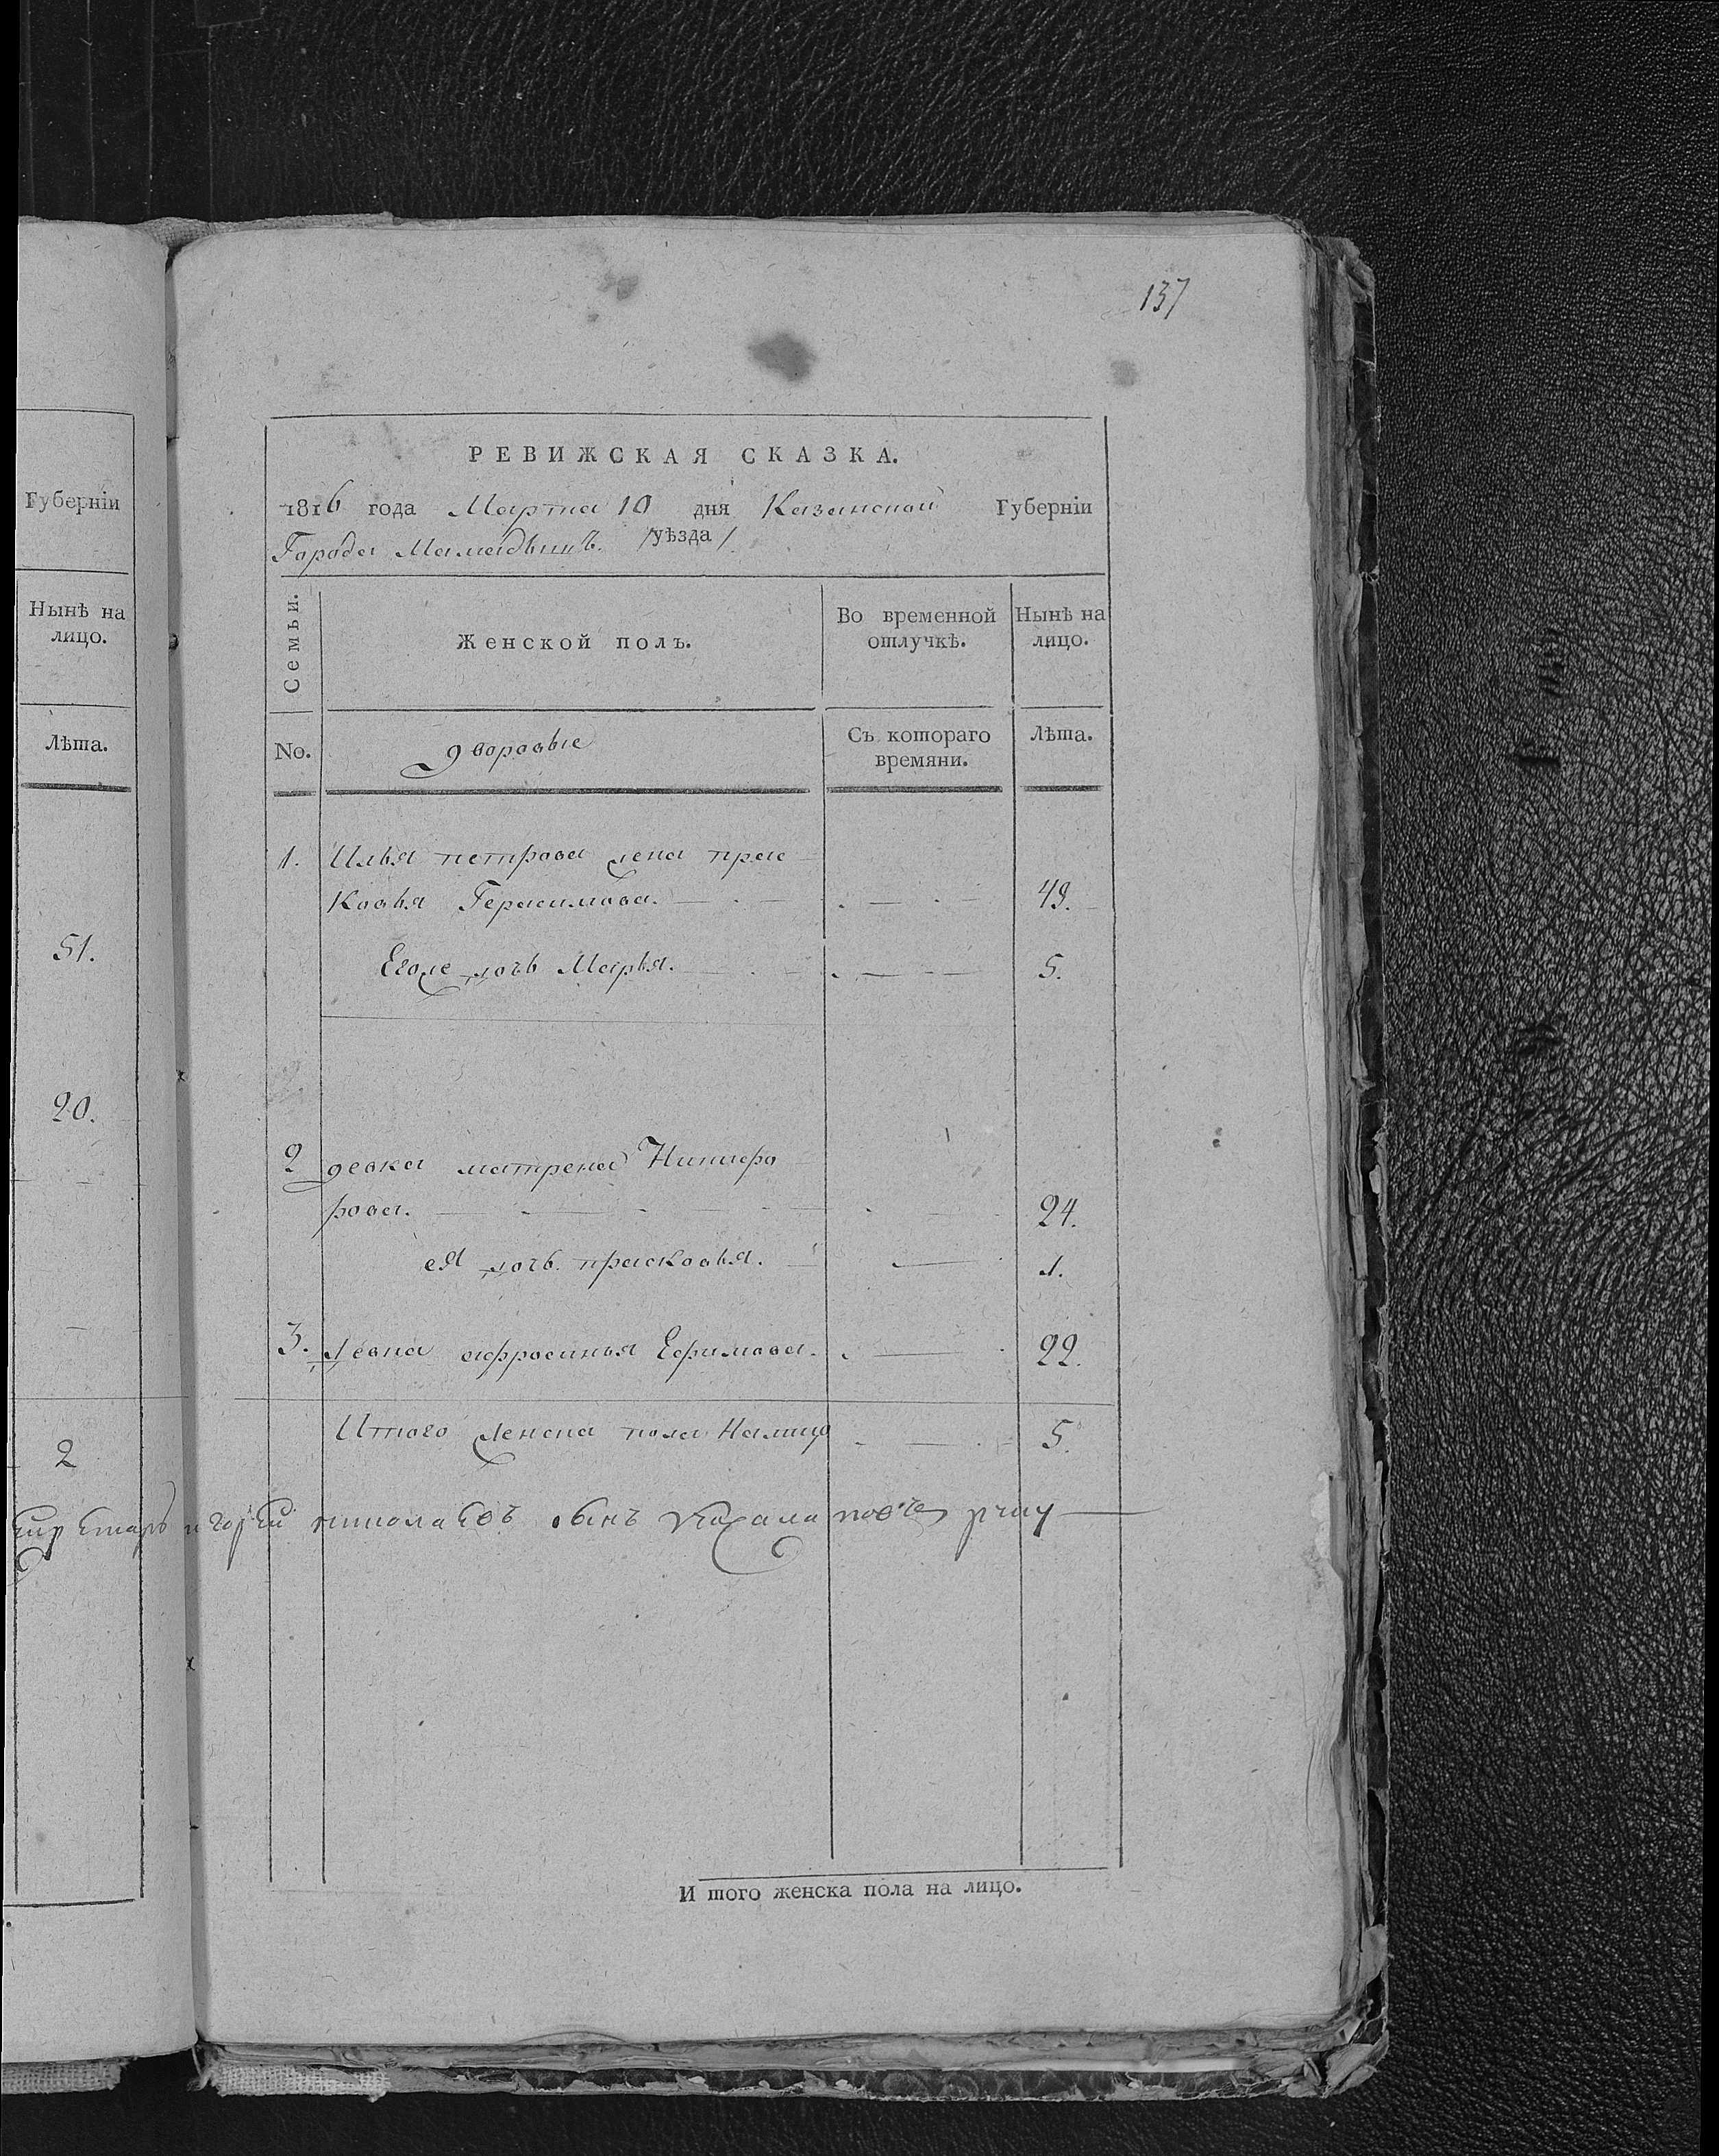 Губерніи
Нынѣ на
лицо.
Лѣта.
51.
20.
2
137
РЕВИЖСКАЯ СКАЗКА.
1816 года Марта 10 дня Казанской Губерніи
Города Мамадышъ. /уѣзда/
Семьи.
Женской полъ.
Во временной
отлучкѣ.
Нынѣ на
лицо.
No.
дворовые
Съ котораго
времяни.
Лѣта.
1. Илья петрова жена прас
ковья Герасимова. 49.
Егоже дочь Марья. 5.
2 девка матрена Никифо
рова. 24.
ея дочь прасковья. 1.
3. девка афросинья Ефимова. 22.
Итого женска пола налицо 5.
николаевъ сынъ
И того женска пола на лицо.